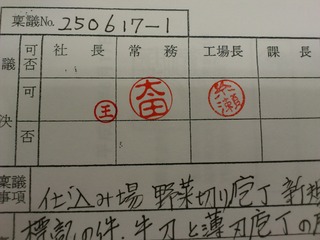 稟議No. 250617-1
議 可否 社長 常務 工場長 課長
可 王 太田
決 否
稟議事項 仕込み場 野菜切り庖丁 新規
標記の件、牛刀と薄刃庖丁の